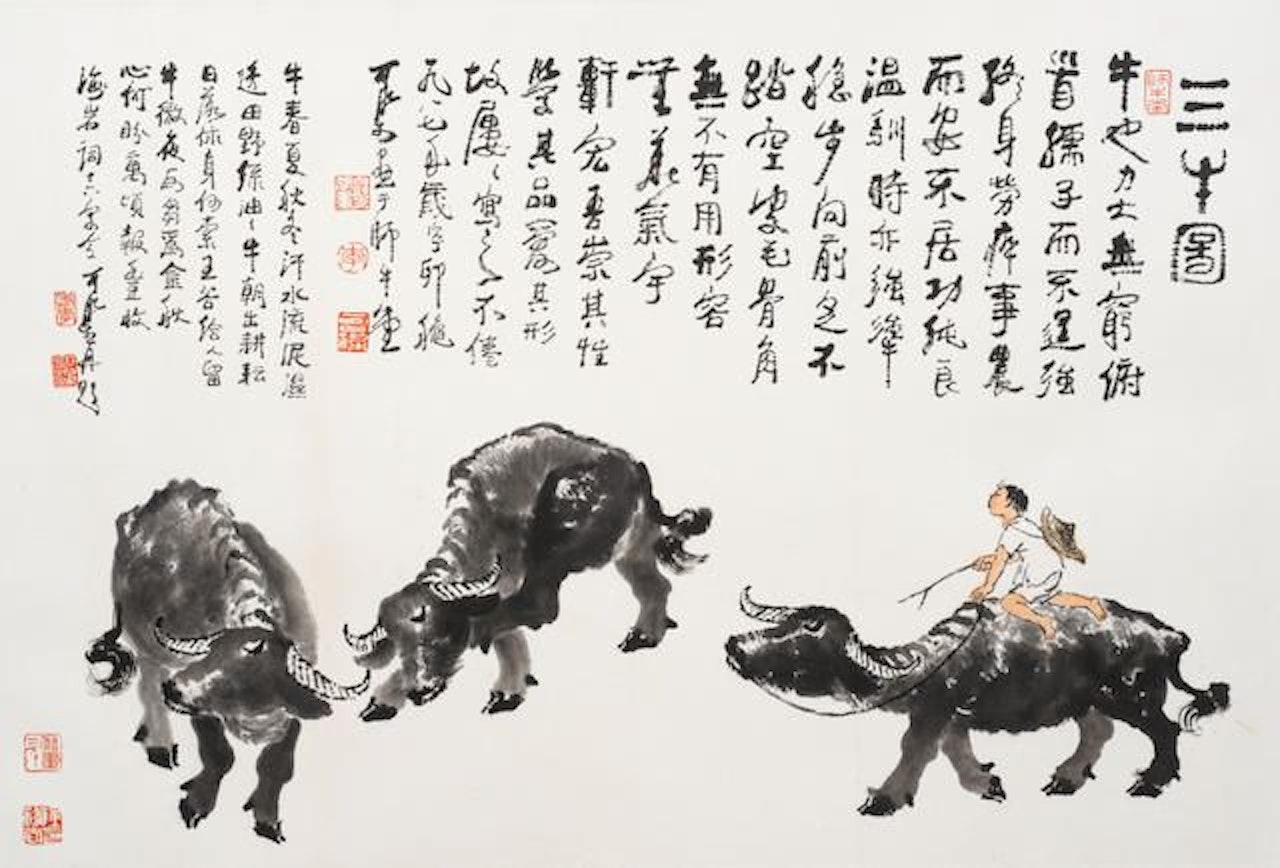 三牛圖
牛也力大無窮俯
首孺子而不逞強
終身勞瘁事農
而安不居功純良
溫馴時亦強犟
穩步向前足不
踏空皮毛骨角
無不有用形容
無華氣宇
軒宏吾崇其性
學其品愛其形
故屢屢寫之不倦
歲
可染畫于師牛堂
牛春夏秋冬汗水流泥濕
透田野綠油油牛朝出耕耘
日落休身何索五谷給人留
牛 夜 為金秋
心何盼萬頃報豐收
海岩詞 題